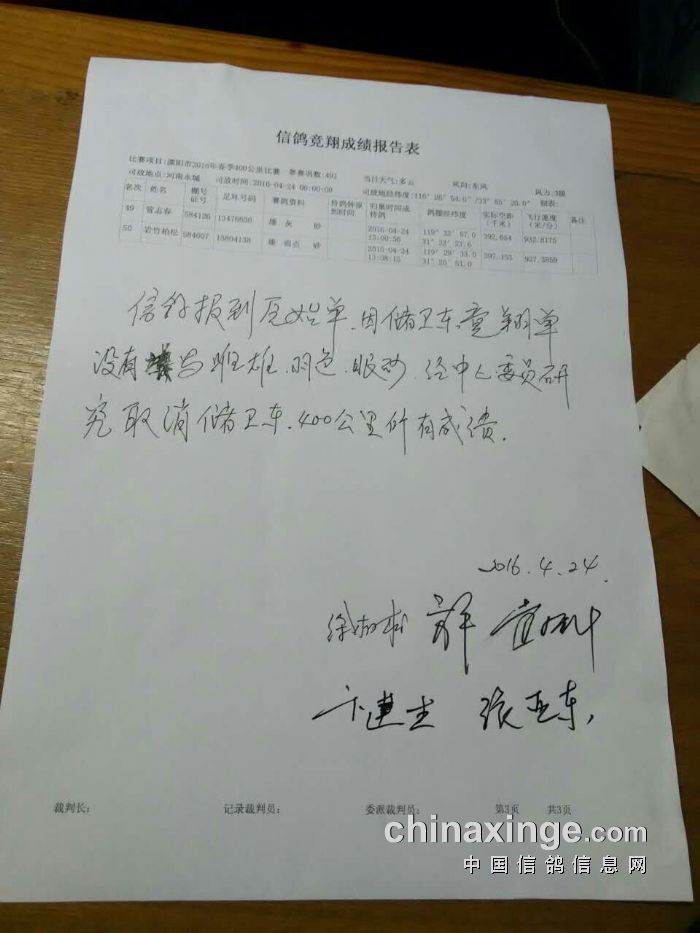 信鸽竞翔成绩报告表
比赛项目:溧阳市2016年春季400公里比赛 参赛羽数:491 当日天气:多云 风向:东风 风力:3级
司放地点:河南永城 司放时间:2016-04-24 06:00:09 司放地经纬度:116° 26' 54.0" /33° 55' 20.0" 制表:
名次 姓名 棚号证号 足环号码 赛鸽资料 持鸽钟原到时间 归巢时间或持鸽 鸽棚经纬度 实际空距(千米) 飞行速度(米/分) 备注
49 管志春 584126 13476630 雄 灰 砂 2016-04-24 13:00:56 119° 32' 57.0 31° 22' 21.6 392.654 932.8175
50 岩竹柏松 584007 15804138 雄 雨点 砂 2016-04-24 13:08:15 119° 29' 33.0 31° 26' 51.0 397.153 927.3859
信鸽报到原始单.因储卫东.竞翔单
没有 写雌雄.羽色.眼砂.经中心委员研
究取消储卫东.400公里所有成绩.
2016.4.24.
张亚东
裁判长: 记录裁判员: 委派裁判员: 第3页 共3页
chinaxinge.com
中国信鸽信息网